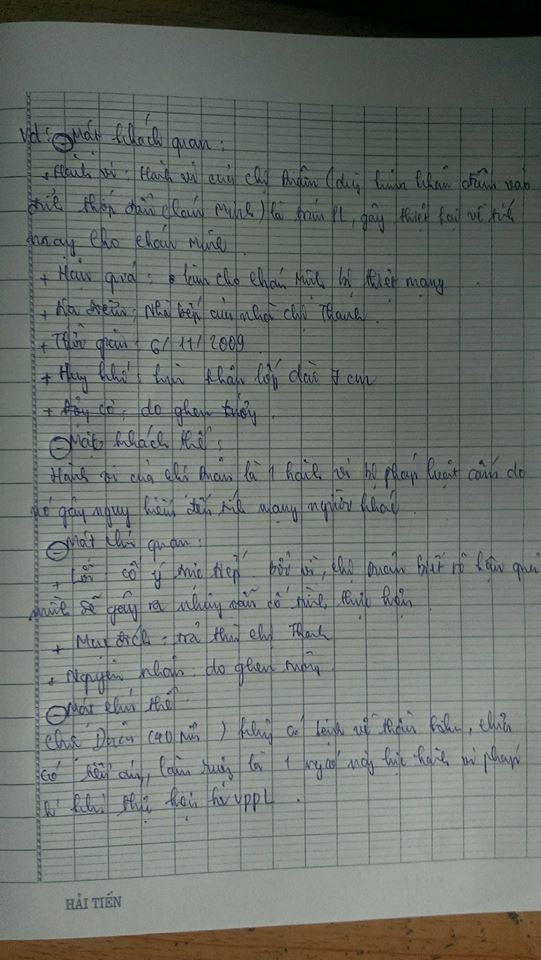 Vd: - Mặt khách quan:
+ Hành vi: Hành vi của chị (dùng đâm vào
cháu Minh) là trái PL, gây thiệt hại về tính
mạng cho cháu Minh
+ Hậu quả: làm cho cháu Minh bị thiệt mạng
+ Địa điểm: Nhà bếp của nhà chị Thanh.
+ Thời gian: 6/11/2009
+ Hung khí: dài 7 cm
+ do ghen
- Mặt khách thể:
Hành vi của chị là 1 hành vi bị pháp luật cấm do
nó gây nguy hiểm đến tính mạng người khác
- Mặt chủ quan:
+ Lỗi cố ý trực tiếp bởi vì, chị biết rõ hậu quả
mình sẽ gây ra nhưng vẫn cố tình thực hiện
+ Mục đích: trả thù chị Thanh
+ Nguyên nhân: do ghen tuông
- Mặt chủ thể.
(40 tuổi) có bệnh về thần kinh, chưa
có tiền án, là 1 hành vi pháp
lí khi thực hiện hv VPPL.
HẢI TIẾN